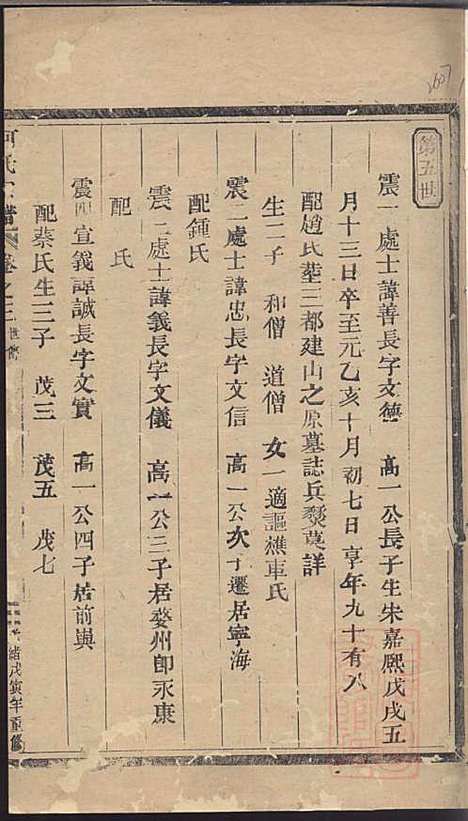 2607
第五世
震一處士諱善長字文德 高一公長子生朱嘉熙戊戌五
月十三日卒至元乙亥十月初七日亨年九十有八
配趙氏葬三都建山之原墓誌兵燹莫詳
生二子 和僧 道僧 女一適謳樵車氏
震二處士諱忠長字文信 高一公次子遷居寧海
配鍾氏
震三處士諱義長字文儀 高一公三子居婺州即永康
配 氏
震四宣義諱誠長字文實 高一公四子居前與
配蔡氏生三子 茂三 茂五 茂七
何氏宗譜 卷之三 世傳
緒戊寅年重修